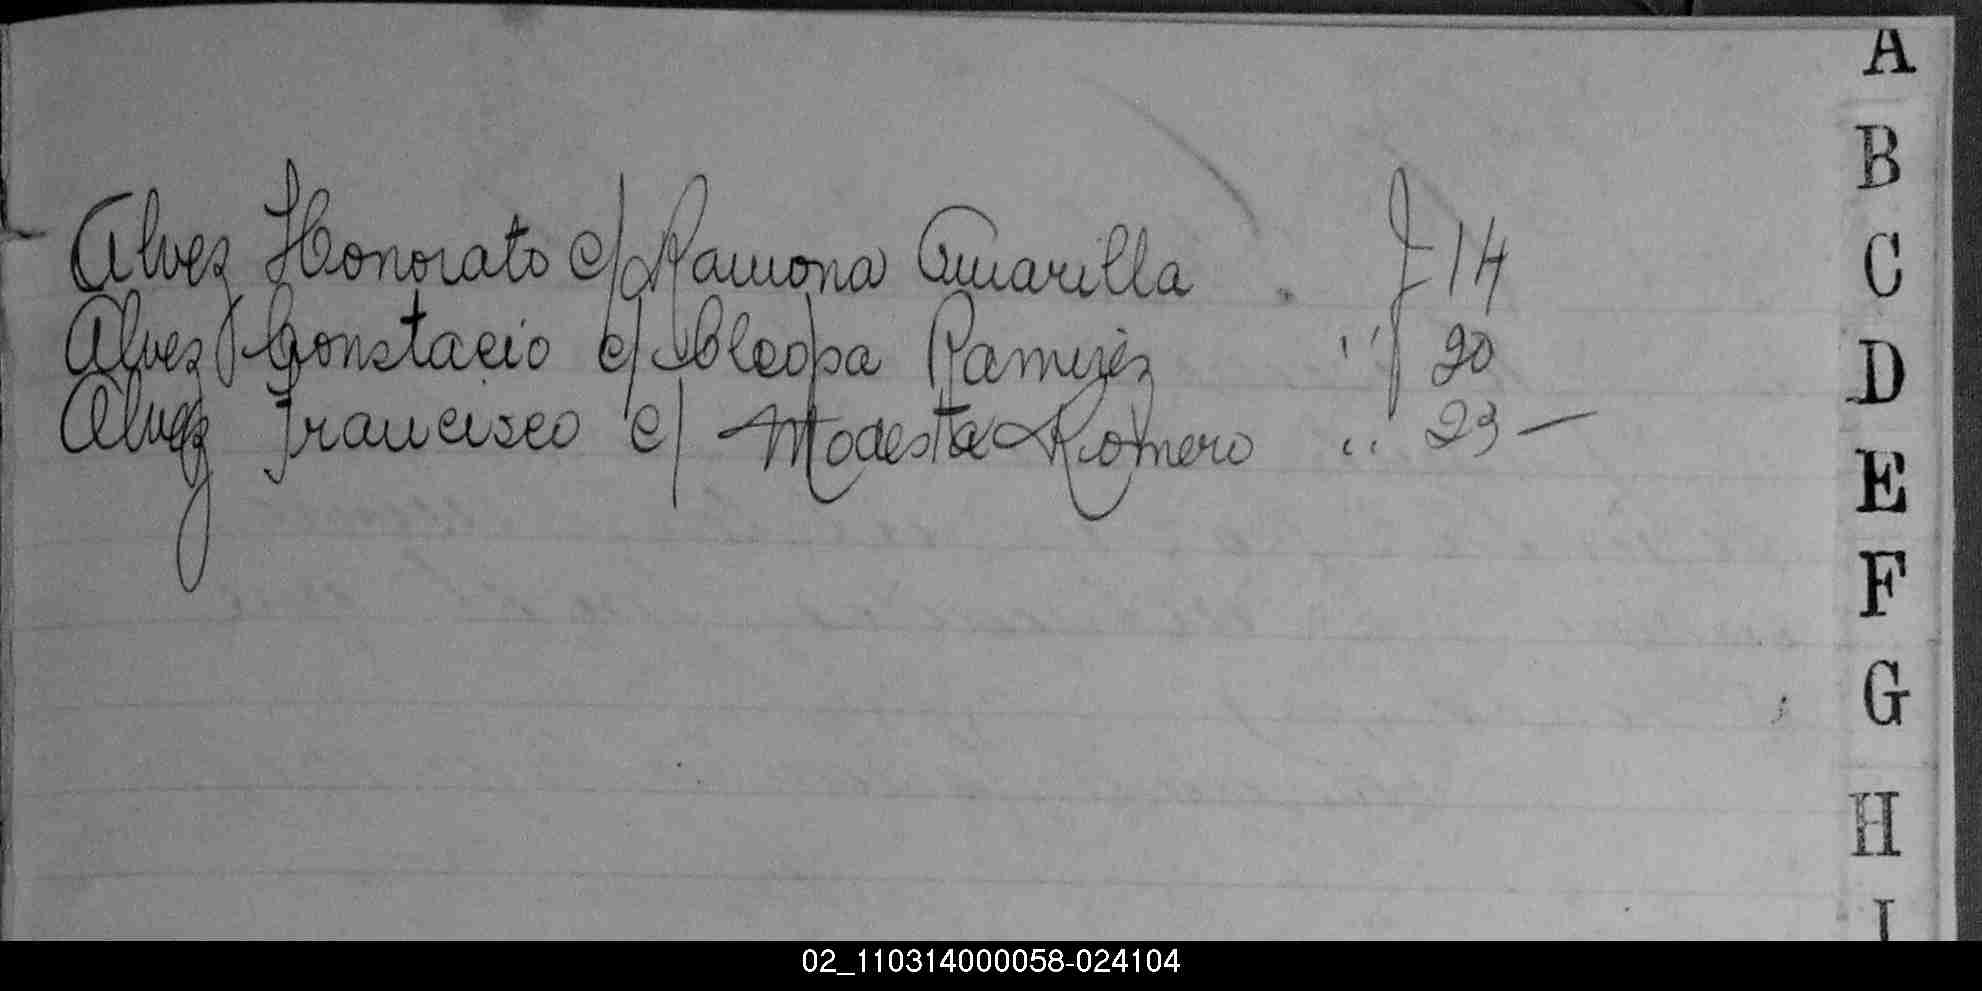 Alvez Honorato c/ Ramona Amarilla . F 14
Alvez Constacio c/ Cleopa Ramirez '' '' 20
Alvez Francisco c/ Modesta Romero '' 23 —
A
B
C
D
E
F
G
H
I
02_110314000058-024104